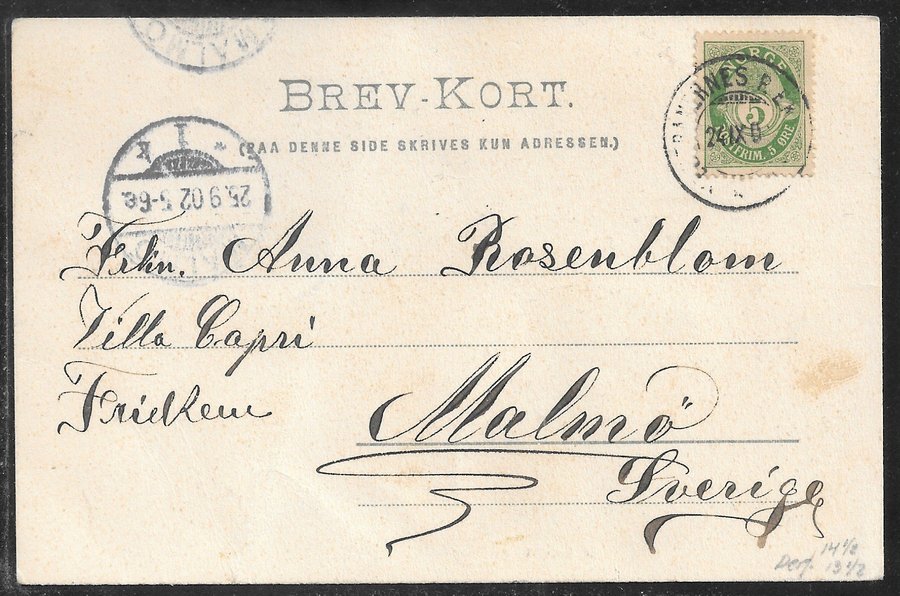 MALMÖ
BREV-KORT.
(PAA DENNE SIDE SKRIVES KUN ADRESSEN.)
NORGE
5
FRIM. 5 ØRE
24 IX 0
1 K
25.9.02 5-6e.
Frkn. Anna Rosenblom
Villa Capri
Malmö
Sverige
Perf. 14 1/2
13 1/2